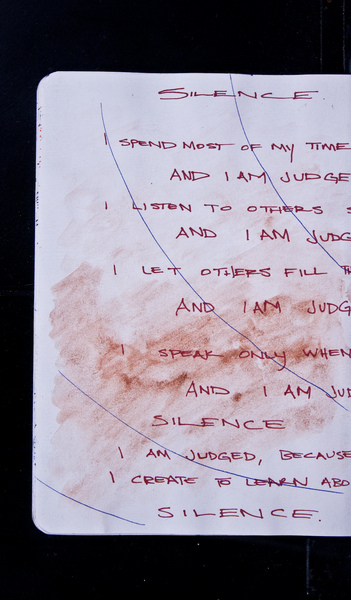 SILENCE.
I SPEND MOST OF MY TIME
AND I AM JUDGE
I LISTEN TO OTHERS
AND I AM JUDG
I LET OTHERS FILL
AND I AM JUDG
I SPEAK ONLY WHEN
AND I AM JUD
SILENCE
I AM JUDGED, BECAUSE
I CREATE TO LEARN ABO
SILENCE.